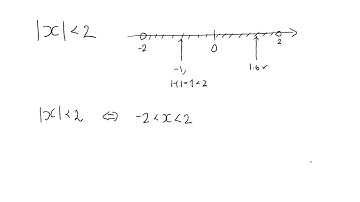 |x| < 2
-2 0 2
-1, 1.6 ✓
|-1| = 1 < 2
|x| < 2 ⇔ -2 < x < 2